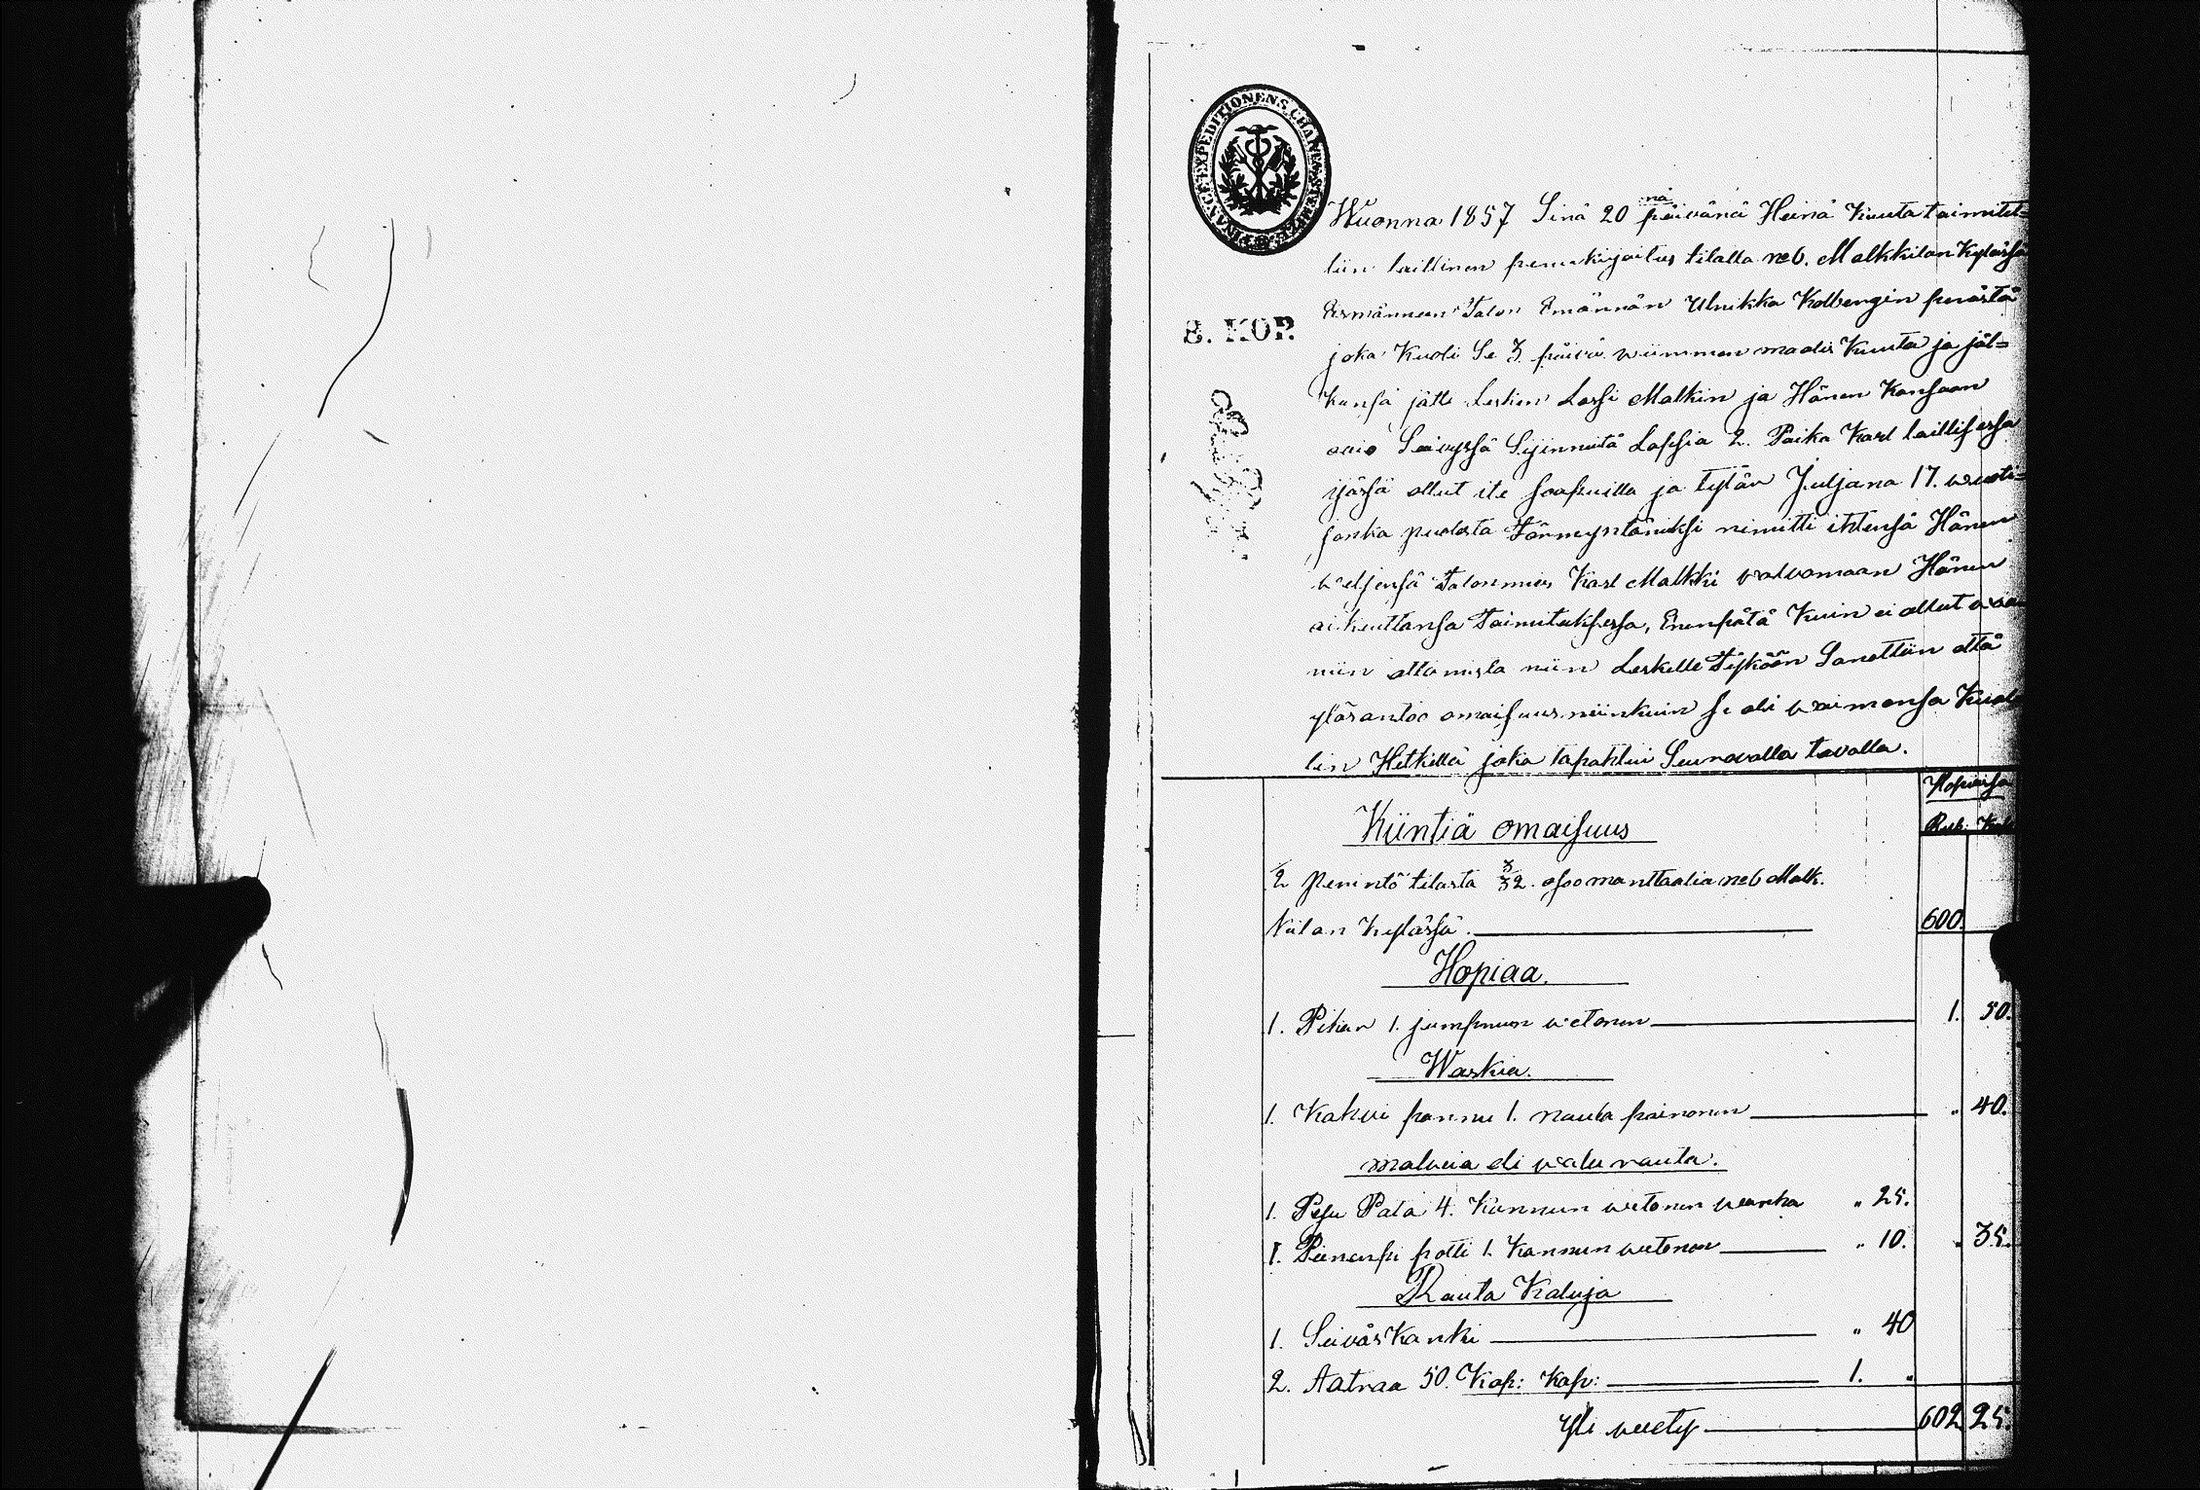 FINANCE-EXPEDITIONENS CHARTÆ STEMPEL
8. KOP.
Wuonna 1857 Sinä 20 nä päivänä Heinä Kuuta taimitet=
tiin laillinen perunkirjoitus tilalla No 6. Malkkilan Kylässä
Talon Emännän Ulrikka Kolbengin perästä
joka Kuoli Se 3 päivä wiimmen maalis Kuuta ja jäl=
kensä jätti Lesken Lassi Malkin ja Hänen Kanssaan
awio Säädyssä Sijinneitä Lapsia 2. Poika Karl laillisessa
ijässä ollut ite saapuilla ja tytär Juljana 17. wuoti=
jonka puolesta nimitti ittensä Hänen
weljensä Talonmies Karl Malkki walvomaan Hänen
oikeuttansa Taimituksessa, Enenpätä Kuin ei ollut
niin ottamista niin Leskelle Tykään Sanottiin että
ylösantaa omaisuus niinkuin se oli waimonsa Kuole
lin Hetkellä joka tapahtui Seuravalla tavalla.
Hopiassa
Rub. Kop
Kiintiä omaisuus
1/2 perintö tilasta 3/32. osoo manttaalia No 6 Malk.
kilan kylässä. 600.
Hopiaa.
1. Pikari 1. jumprun wetonen 1. 50.
Waskia.
1. Kahvi pannu 1. naula painonen " 40.
malmia eli walu rauta.
1. Pesu Pata 4. Kannun wetonen wanha " 25.
1. Pienenpi potti 1. Kannun wetonen " 10. " 35.
Rauta Kaluja
1. Seiväs Kanki " 40
2. Aatraa 50. Kop: Kap: 1. "
Yli weety 602 25.